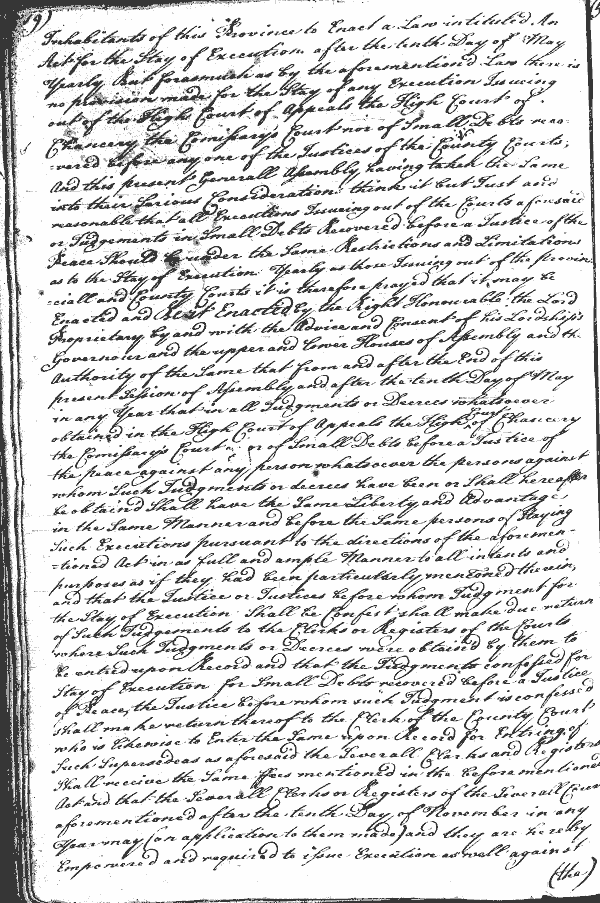 19)
Inhabitants of this Province to Enact a Law intituled An
Act for the Stay of Execution after the tenth Day of May
Yearly But forasmuch as by the aforementioned Law there is
no provision made for the Stay of any Execution Issuing
out of the High Court of Appeals the High Court of
Chancery the Comissarys Court nor of Small Debts reco-
-vered before any one of the Justices of the County Courts,
And this present Generall Assembly having taken the Same
into their Serious Consideration think it but Just and
reasonable that all Executions Issueing out of the Courts aforesaid
or Judgements in Small Debts Recovered before a Justice of the
Peace Should be under the Same Restrictions and Limitations
as to the Stay of Execution Yearly as those Issuing out of the provin-
-ciall and County Courts it is therefore prayed that it may be
Enacted and Be it Enacted by the Right Honourable the Lord
Proprietary by and with the Advice and Consent of his Lordships
Governour and the upper and lower Houses of Assembly and the
Authority of the Same that from and after the End of this
present Session of Assembly and after the tenth Day of May
in any Year that in all Judgments or Decrees whatsoever
obtained in the High Court of Appeals the High Court of Chancery
the Comissarys Court or of Small Debts before a Justice of
the peace against any person whatsoever the persons against
whom Such Judgments or decrees have been or Shall hereafter
be obtained Shall have the Same Liberty and Advantage
in the Same Manner and before the Same persons of Staying
Such Executions pursuant to the directions of the aforemen-
-tioned Act in as full and ample Manner to all intents and
purposes as if they had been particulerly mentioned therein,
and that the Justice or Justices before whom Judgment for
the Stay of Execution Shall be Confest shall make due return
of Such Judgements to the Clerks or Registers of the Courts
where Such Judgments or Decrees were obtained by them to
be entred upon Record and that the Judgments confessed for
Stay of Execution for Small Debts recovered before a Justice
of Peace, the Justice before whom such Judgment is confessed
shall make return thereof to the Clerk of the County Court
who is likewise to Enter the Same upon Record for Entring of
Such Supersedeas as aforesaid the Severall Clerks and Registers
Shall receive the Same ffees mentioned in the beforementioned
Act and that the Severall Clerks or Registers of the Severall Courts
aforementioned after the tenth Day of November in any
Year may (on application to them made) and they are hereby
Empowered and required to issue Execution as well against
(the)